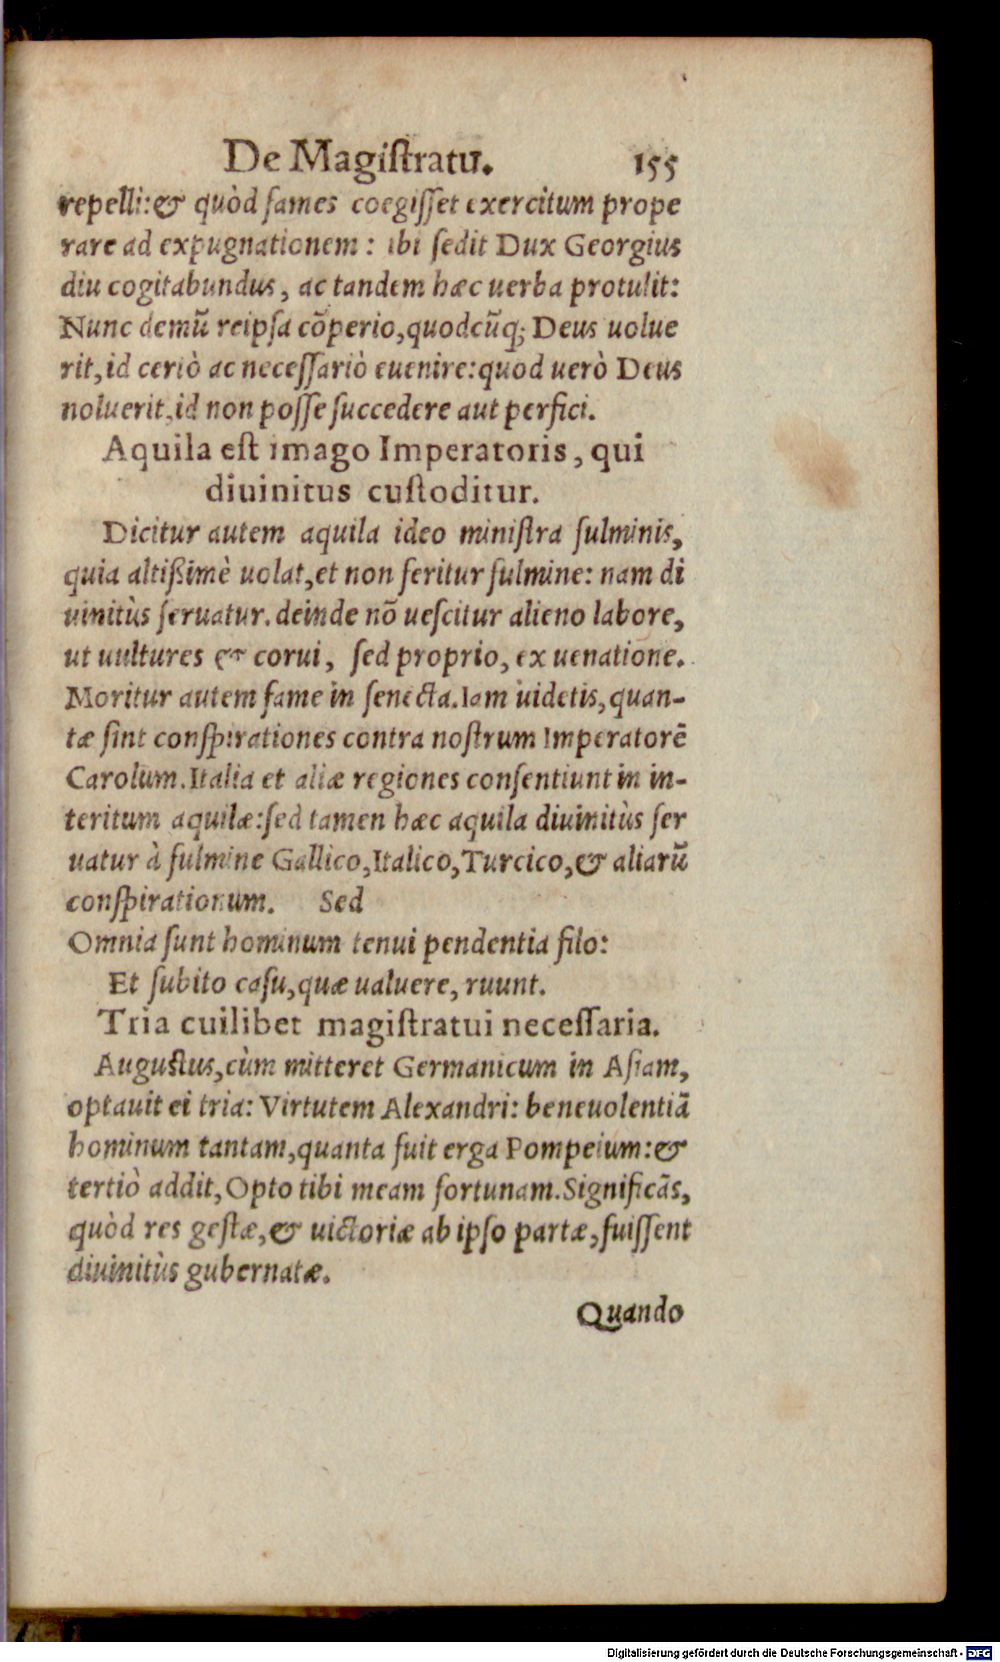 De Magiſtratu. 155
repelli:& quòd fames coegiſſet exercitum prope
rare ad expugnationem : ibi ſedit Dux Georgius
diu cogitabundus, ac tandem hæc uerba protulit:
Nunc demū reipſa cōperio,quodcūq; Deus uolue
rit,id certò ac neceſſariò euenire:quod uerò Deus
noluerit,id non poſſe ſuccedere aut perfici.
Aquila eſt imago Imperatoris, qui
diuinitus cuſtoditur.
Dicitur autem aquila ideo miniſtra fulminis,
quia altißimè uolat,et non feritur fulmine: nam di
uinitùs ſeruatur. deinde nō ueſcitur alieno labore,
ut uultures & corui, ſed proprio, ex uenatione.
Moritur autem fame in ſenecta.Iam uidetis, quan-
tæ ſint conſpirationes contra noſtrum Imperatorē
Carolum.Italia et aliæ regiones conſentiunt in in-
teritum aquilæ:ſed tamen hæc aquila diuinitùs ſer
uatur à fulmine Gallico,Italico,Turcico,& aliarū
conſpirationum. Sed
Omnia ſunt hominum tenui pendentia filo:
Et ſubito caſu,quæ ualuere, ruunt.
Tria cuilibet magiſtratui neceſſaria.
Auguſtus,cùm mitteret Germanicum in Aſiam,
optauit ei tria: Virtutem Alexandri: beneuolentiā
hominum tantam,quanta fuit erga Pompeium:&
tertiò addit,Opto tibi meam fortunam.Significās,
quòd res geſtæ,& uictoriæ ab ipſo partæ,fuiſſent
diuinitùs gubernatæ.
Quando
Digitalisierung gefördert durch die Deutsche Forschungsgemeinschaft - DFG